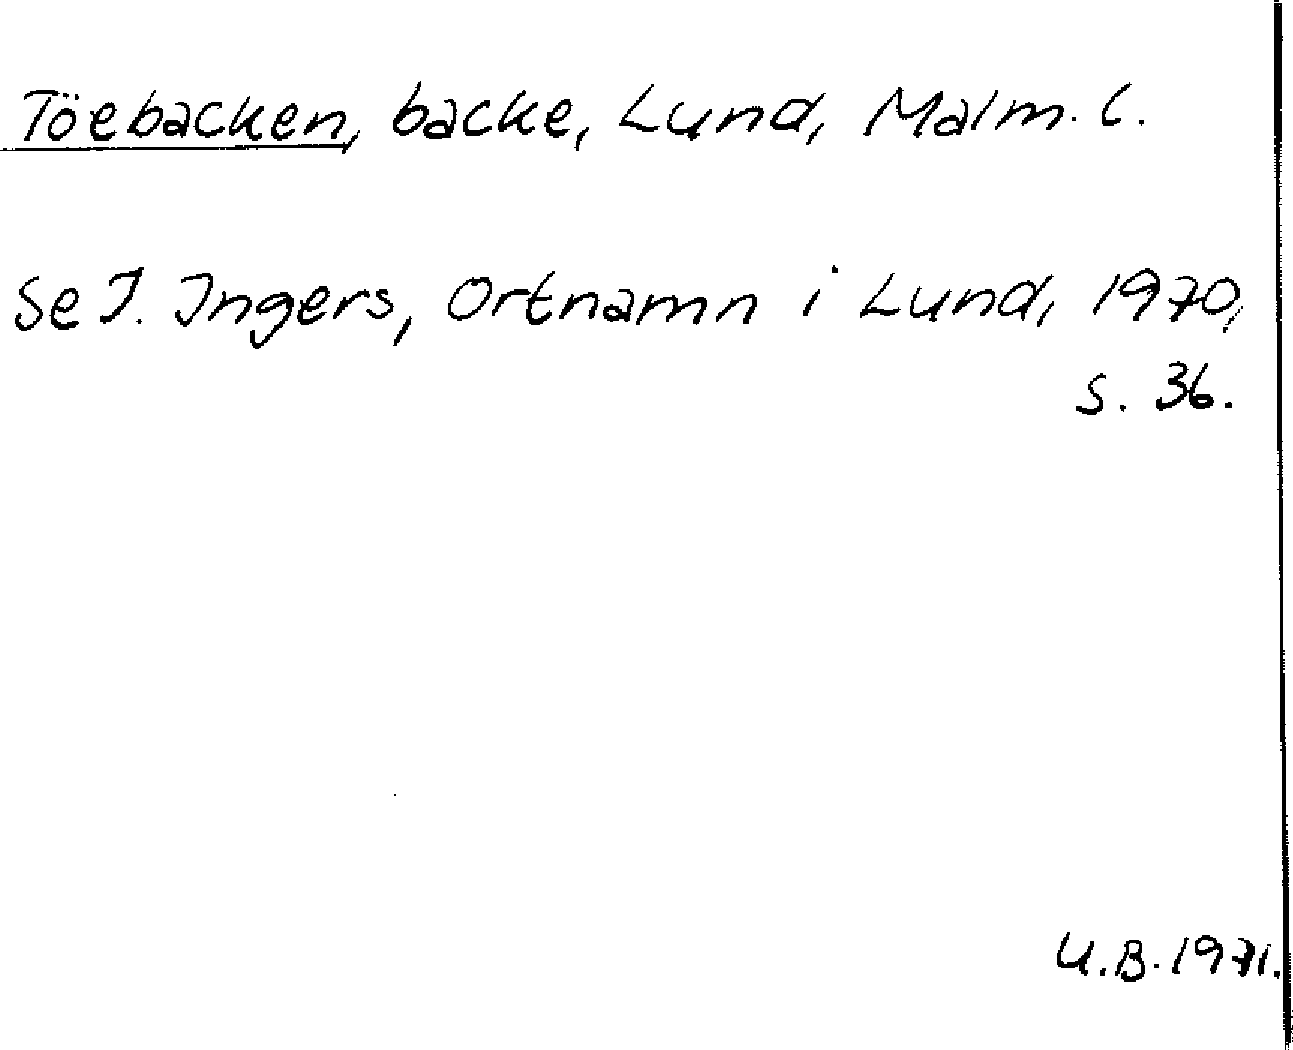 Töebacken, backe, Lund, Malm. l.
Se I. Ingers, Ortnamn i Lund, 1970,
s. 36.
U.B. 1971.